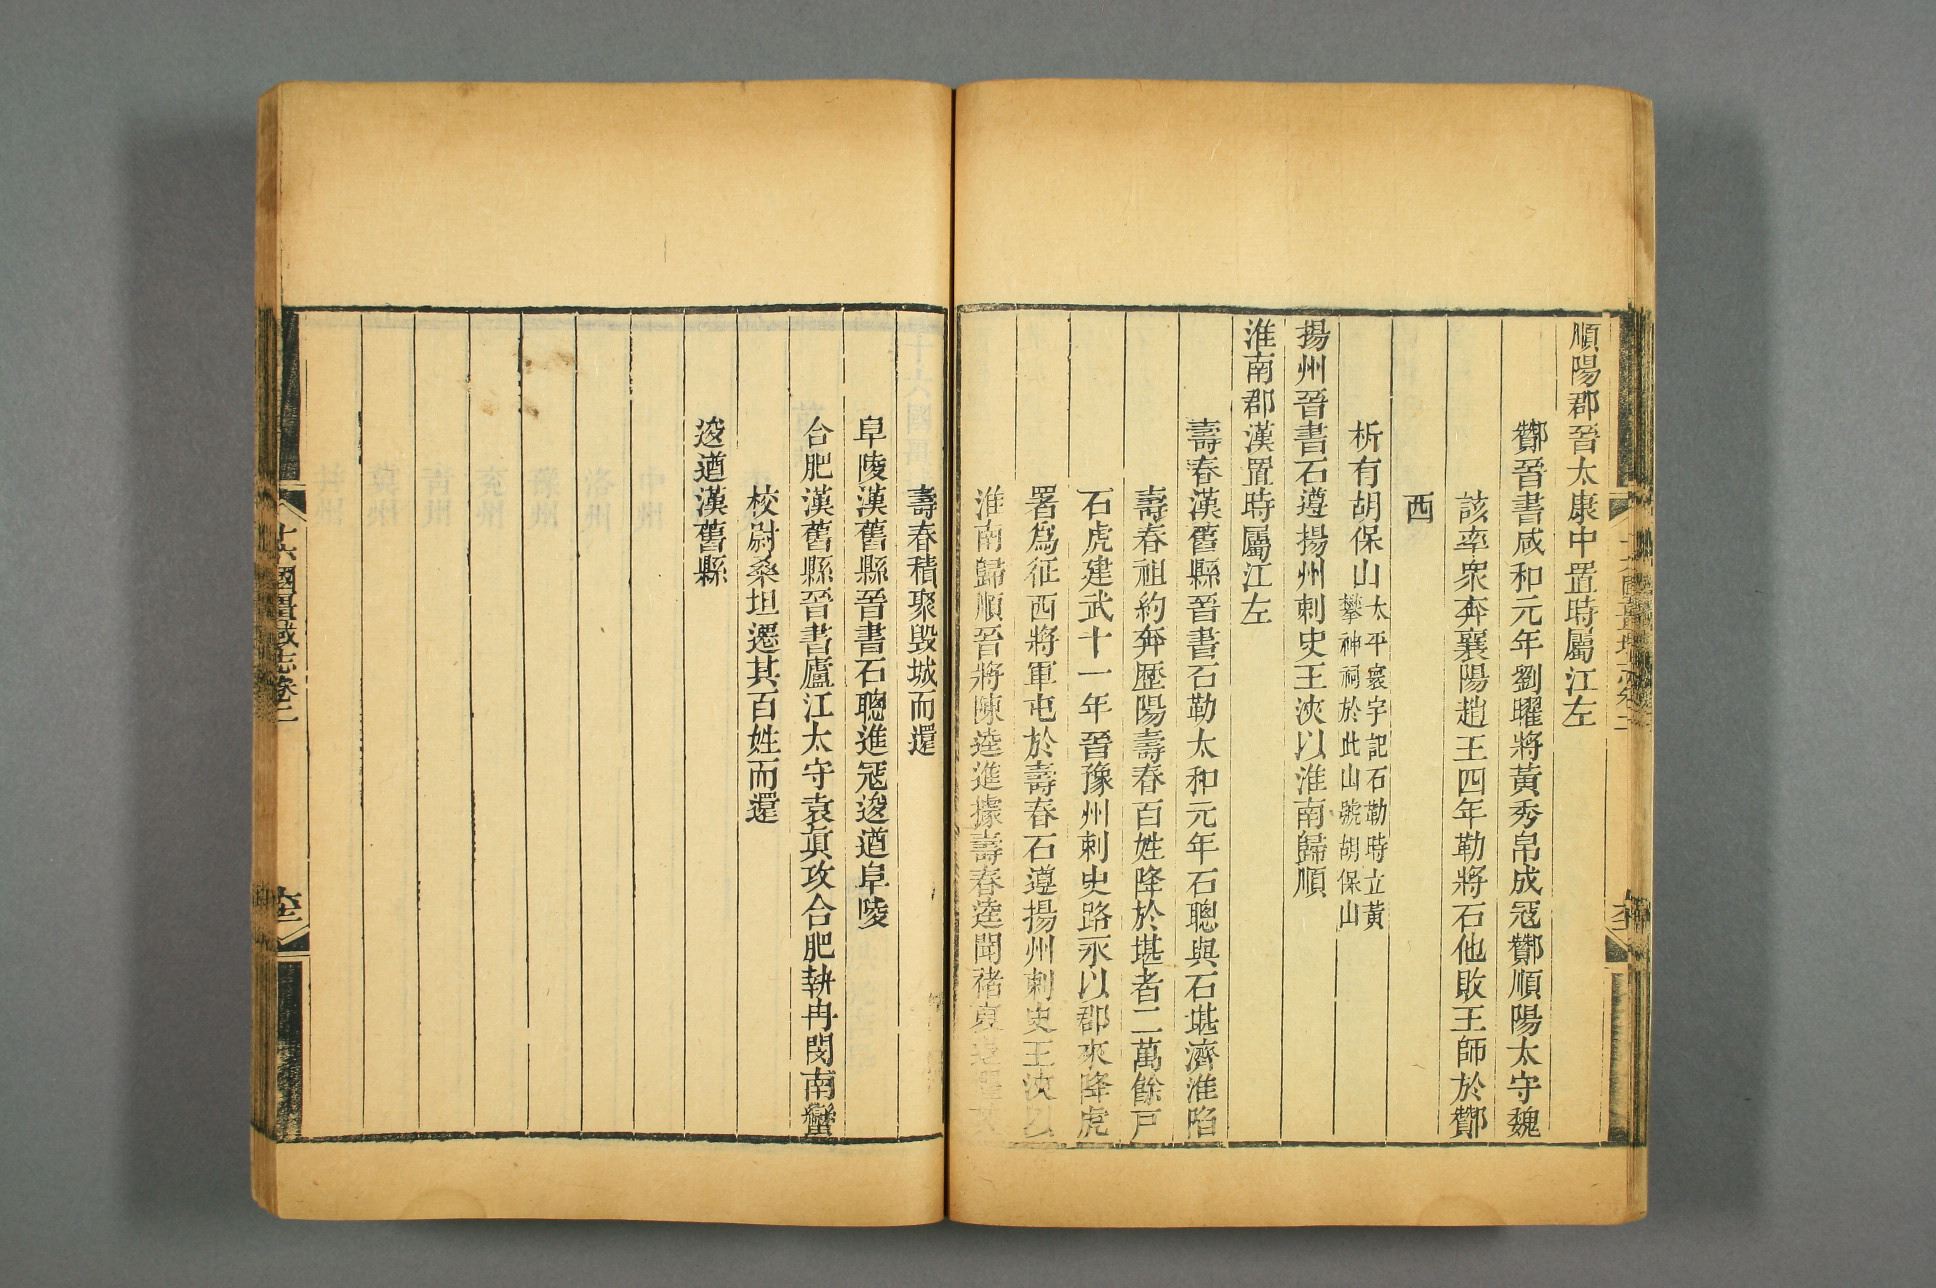 順陽郡晉太康中置時屬江左
酇晉書咸和元年劉曜將黃秀帛成冦酇順陽太守魏
該率衆奔襄陽趙王四年勒將石他敗王師於酇
西
析有胡保山太平寰宇記石勒時立黃
攀神祠於此山號胡保山
揚州晉書石遵揚州刺史王浹以淮南歸順
淮南郡漢置時屬江左
壽春漢舊縣晉書石勒太和元年石聰與石堪濟淮陷
壽春祖約奔歷陽壽春百姓降於堪者二萬餘戸
石虎建武十一年晉豫州刺史路永以郡來降虎
署爲征西將軍屯於壽春石遵揚州刺史王浹以
淮南歸順晉將陳逵進據壽春逵聞禇裒
壽春積聚毀城而還
阜陵漢舊縣晉書石聰進冦逡遒阜陵
合肥漢舊縣晉書廬江太守袁眞攻合肥執冉閔南蠻
校尉桑坦遷其百姓而還
逡遒漢舊縣
十六國疆域志卷二